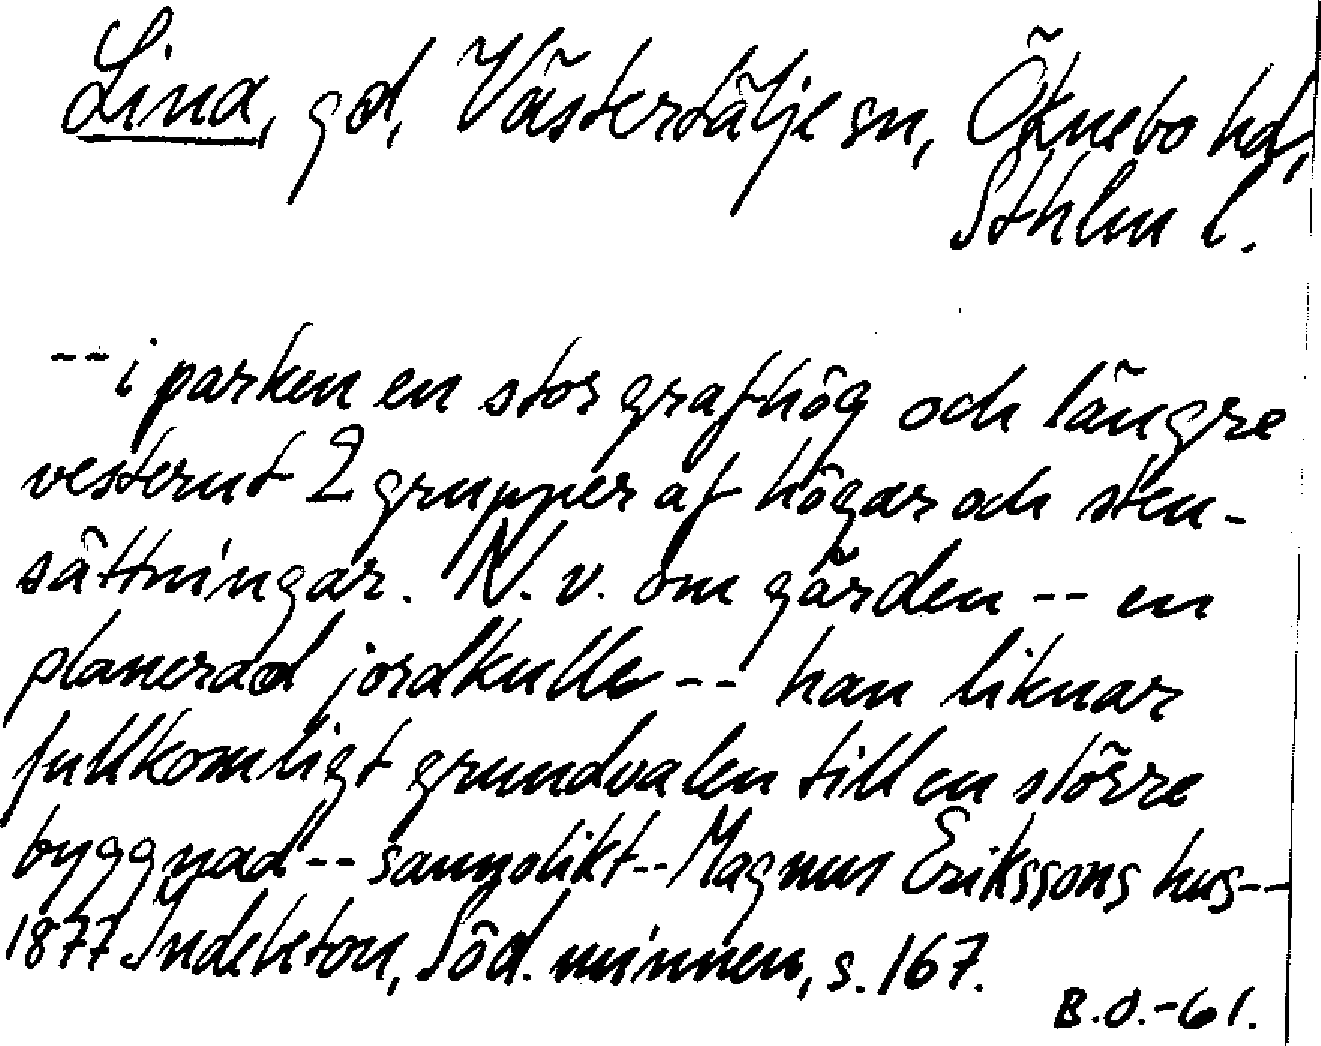 Lina, gd, Västertälje sn, Öknebo hd,
Sthlm l.
-- i parken en stor grafhög och längre
vesterut 2 grupper af högar och sten-
sättningar. N. v. om gården -- en
planerad jordkulle -- han liknar
fullkomligt grundvalen till en större
byggnad -- sannolikt -- Magnus Erikssons hus --
1877 Indebetou, Söd. minnen, s. 167.
B.O.-61.